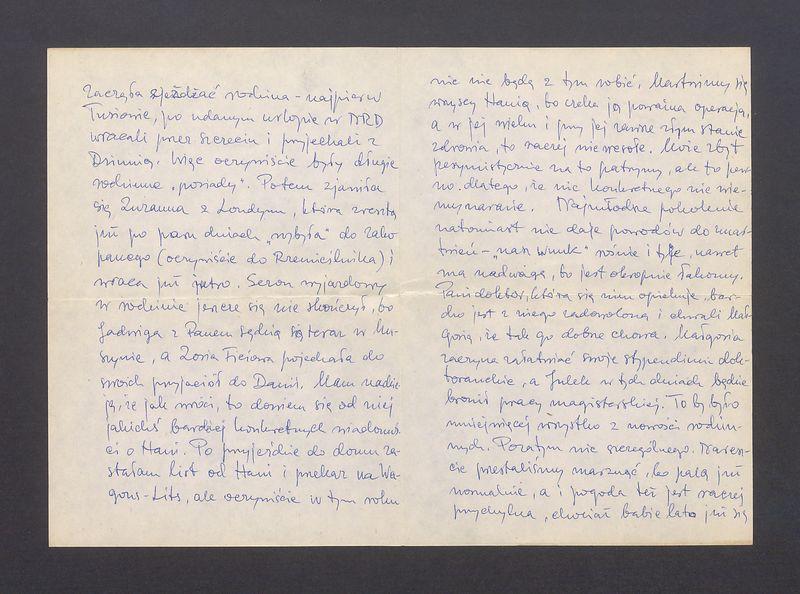 zaczęła zjeżdżać rodzina – najpierw
po udanym urlopie w NRD
wracali przez Szczecin i przyjechali z
Dziunią. Więc oczywiście były długie
rodzinne „posiady". Potem zjawiła
się Zuzanna z Londynu, która zresztą
już po paru dniach „wybyła" do Zako
panego (oczywiście do Rzemieślnika) i
wraca już jutro. Sezon wyjazdowy
w rodzinie jeszcze się nie skończył, bo
Jadwiga z Panem są teraz w Mu-
szynie, a Zosia pojechała do
swoich przyjaciół do Danii. Mam nadzie
ję, że jak wróci, to dowiem się od niej
jakichś bardziej konkretnych wiadomoś
ci o Hani. Po przyjeździe do domu za-
stałam list od Hani i przekaz na Wa-
gons-Lits, ale oczywiście w tym roku
nic nie będę z tym robić. Martwimy się
wszyscy Hanią, bo czeka ją poważna operacja,
a w jej wieku i przy jej zawsze złym stanie
zdrowia, to raczej niewesołe. Może zbyt
pesymistycznie na to patrzymy, ale to pew-
no dlatego, że nic konkretnego nie wie-
my narazie. Najmłodsze pokolenie
natomiast nie daje powodów do zmar-
twień – „nasz wnuk" rośnie i tyje, nawet
ma nadwagę, bo jest okropnie łakomy.
Pani doktór, która się nim opiekuje, bar-
dzo jest z niego zadowolona i chwali Mał-
gosię, że tak go dobrze chowa. Małgosia
zaczyna załatwiać swoje stypendium dok-
toranckie, a Julek w tych dniach będzie
bronił pracy magisterskiej. To by było
mniejwięcej wszystko z nowości rodzin-
nych. Pozatym nic szczególnego. Naresz-
cie przestaliśmy marznąć, bo palą już
normalnie, a i pogoda też jest raczej
przychylna, chociaż babie lato już się